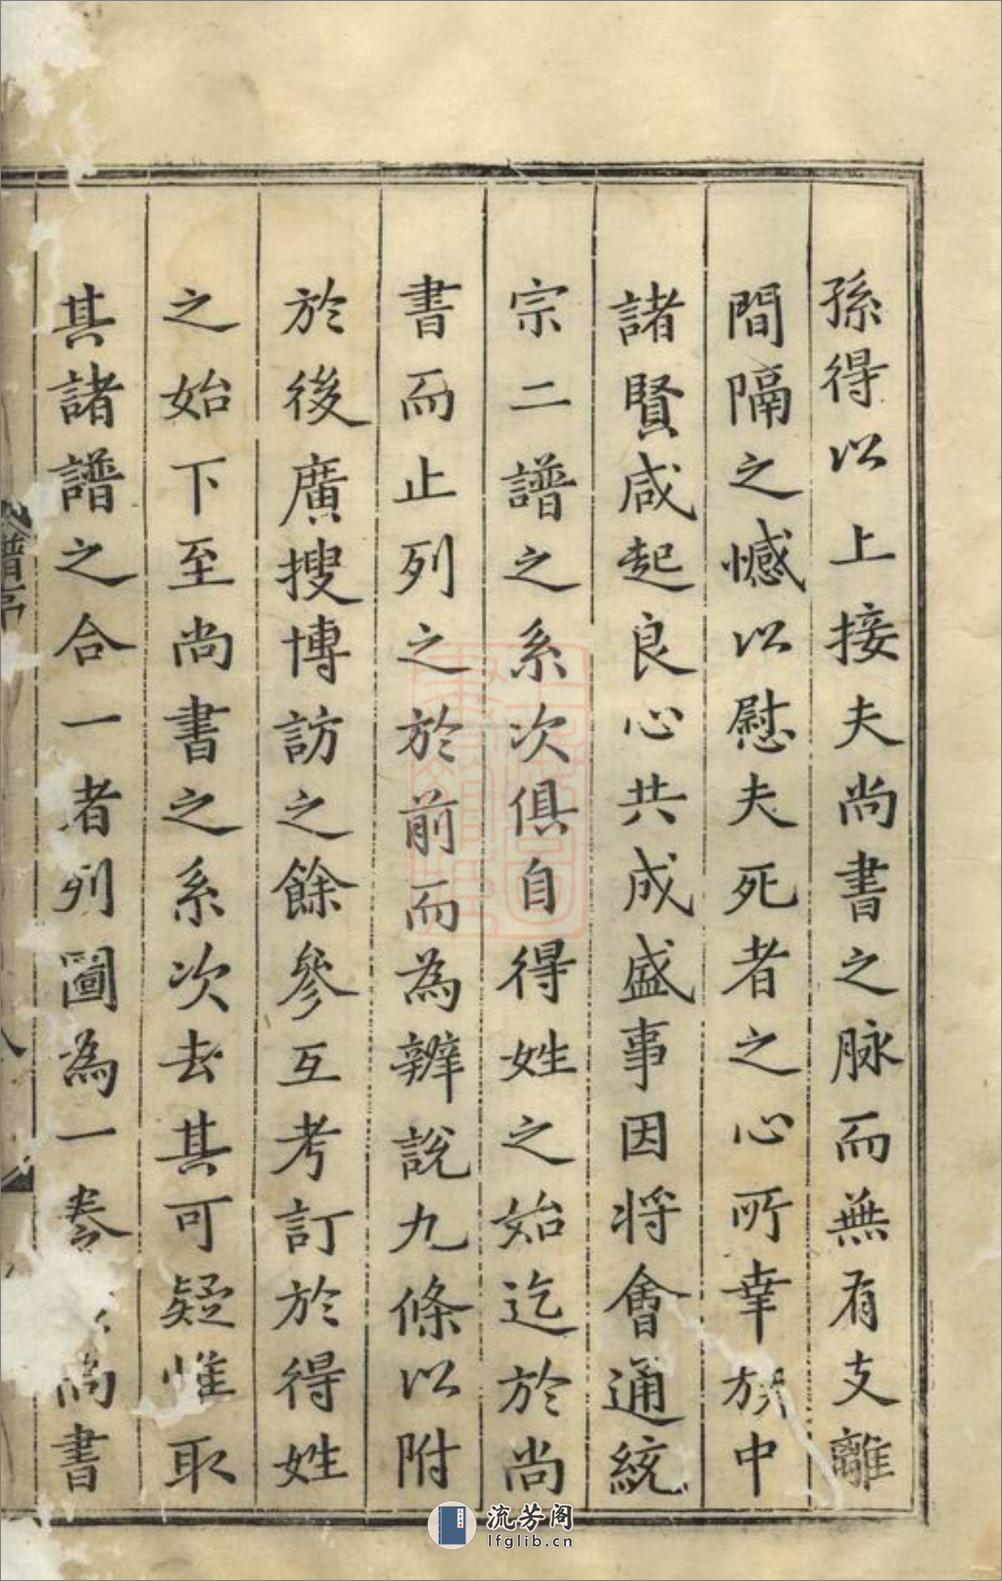 孫得以上接夫尚書之脉而無有支離
間隔之憾以慰夫死者之心所幸族中
諸賢咸起良心共成盛事因将會通統
宗二譜之系次俱自得姓之始迄於尚
書而止列之於前而為辨說九條以附
於後廣搜博訪之餘參互考訂於得姓
之始下至尚書之系次去其可疑惟取
其諸譜之合一者列圖為一秦尚書
譜序
流芳阁
lfglib.cn